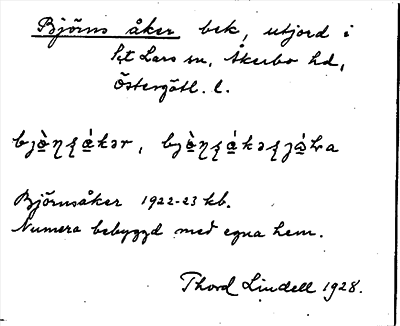 Björns åker bek, utjord i
S:t Lars sn, Åkerbo hd,
Östergötl. l.
Björnsåker 1922-23 kb.
Numera bebyggd med egna hem.
Thord Lindell 1928.